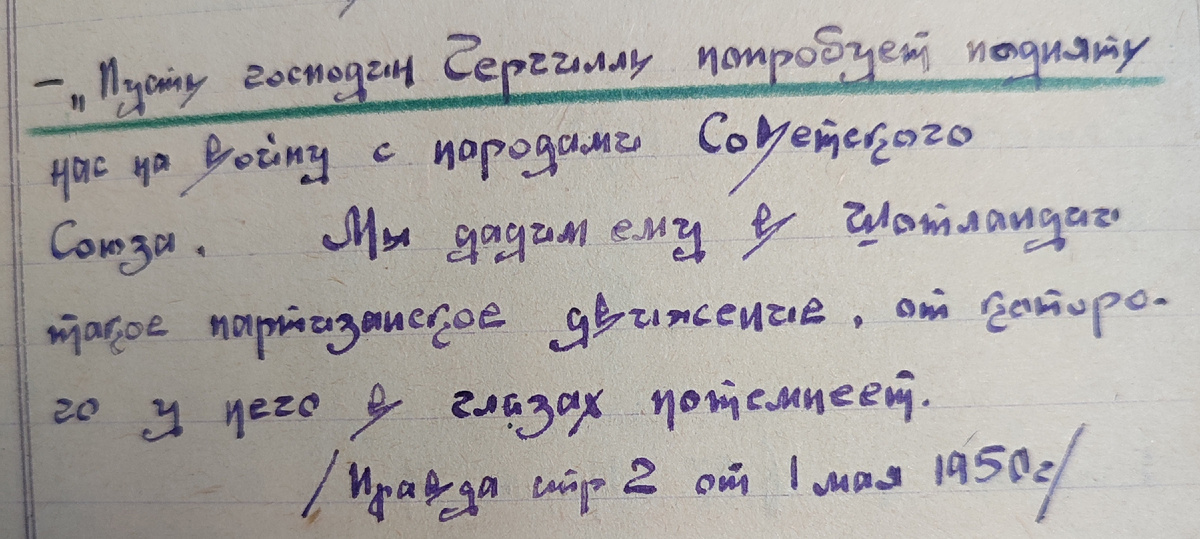 — „Пусть господин Черчилль попробует поднять
нас на войну с народами Советского
Союза. Мы дадим ему в Шотландии
такое партизанское движение, от которо-
го у него в глазах потемнеет.
/Правда стр 2 от 1 мая 1950г/